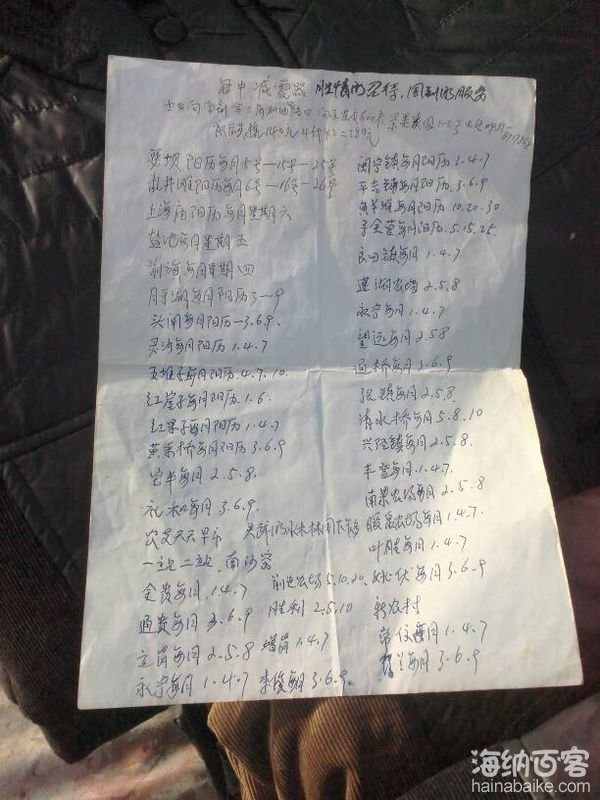 减震器 热情的招待,周到的服务
阳历每月5号—15号—25号
阳历每月6号—16号—26号
上海庙阳历每月星期六
盐池每月星期五
前海每月星期四
月牙湖每月阳历3—9
头闸每月阳历—3.6.9.
灵沙每月阳历1.4.7
五堆子每月阳历.4.7.10.
红崖子每月阳历.1.6.
红果子每月阳历1.4.7
黄渠桥每月阳历3.6.9
每月2.5.8.
礼和每月3.6.9.
农贸天天早市
一站二站 南沙窝
金贵每月.1.4.7
通贵每月3.6.9
立岗每月2.5.8
永宁每月1.4.7
前进农场5.10.20、
胜利2.5.10
增岗1.4.7
李俊每月3.6.9.
闽宁镇每月阳历.1.4.7
平吉镇每月阳历.3.6.9
黄羊滩每月阳历.10.20.30
每月阳历.5.15.25.
良田镇每月1.4.7
莲湖农场2.5.8
永宁每月1.4.7
望远每月2.5.8
通桥每月3.6.9
镇每月2.5.8
清水桥每月5.8.10
兴泾镇每月2.5.8.
丰登每月1.4.7.
南梁农场每月2.5.8
暖泉农场每月1.4.7.
叶胜每月1.4.7
姚伏每月3.6.9
新农村
常信每月1.4.7
每月3.6.9
海纳百客
hainabaike.com